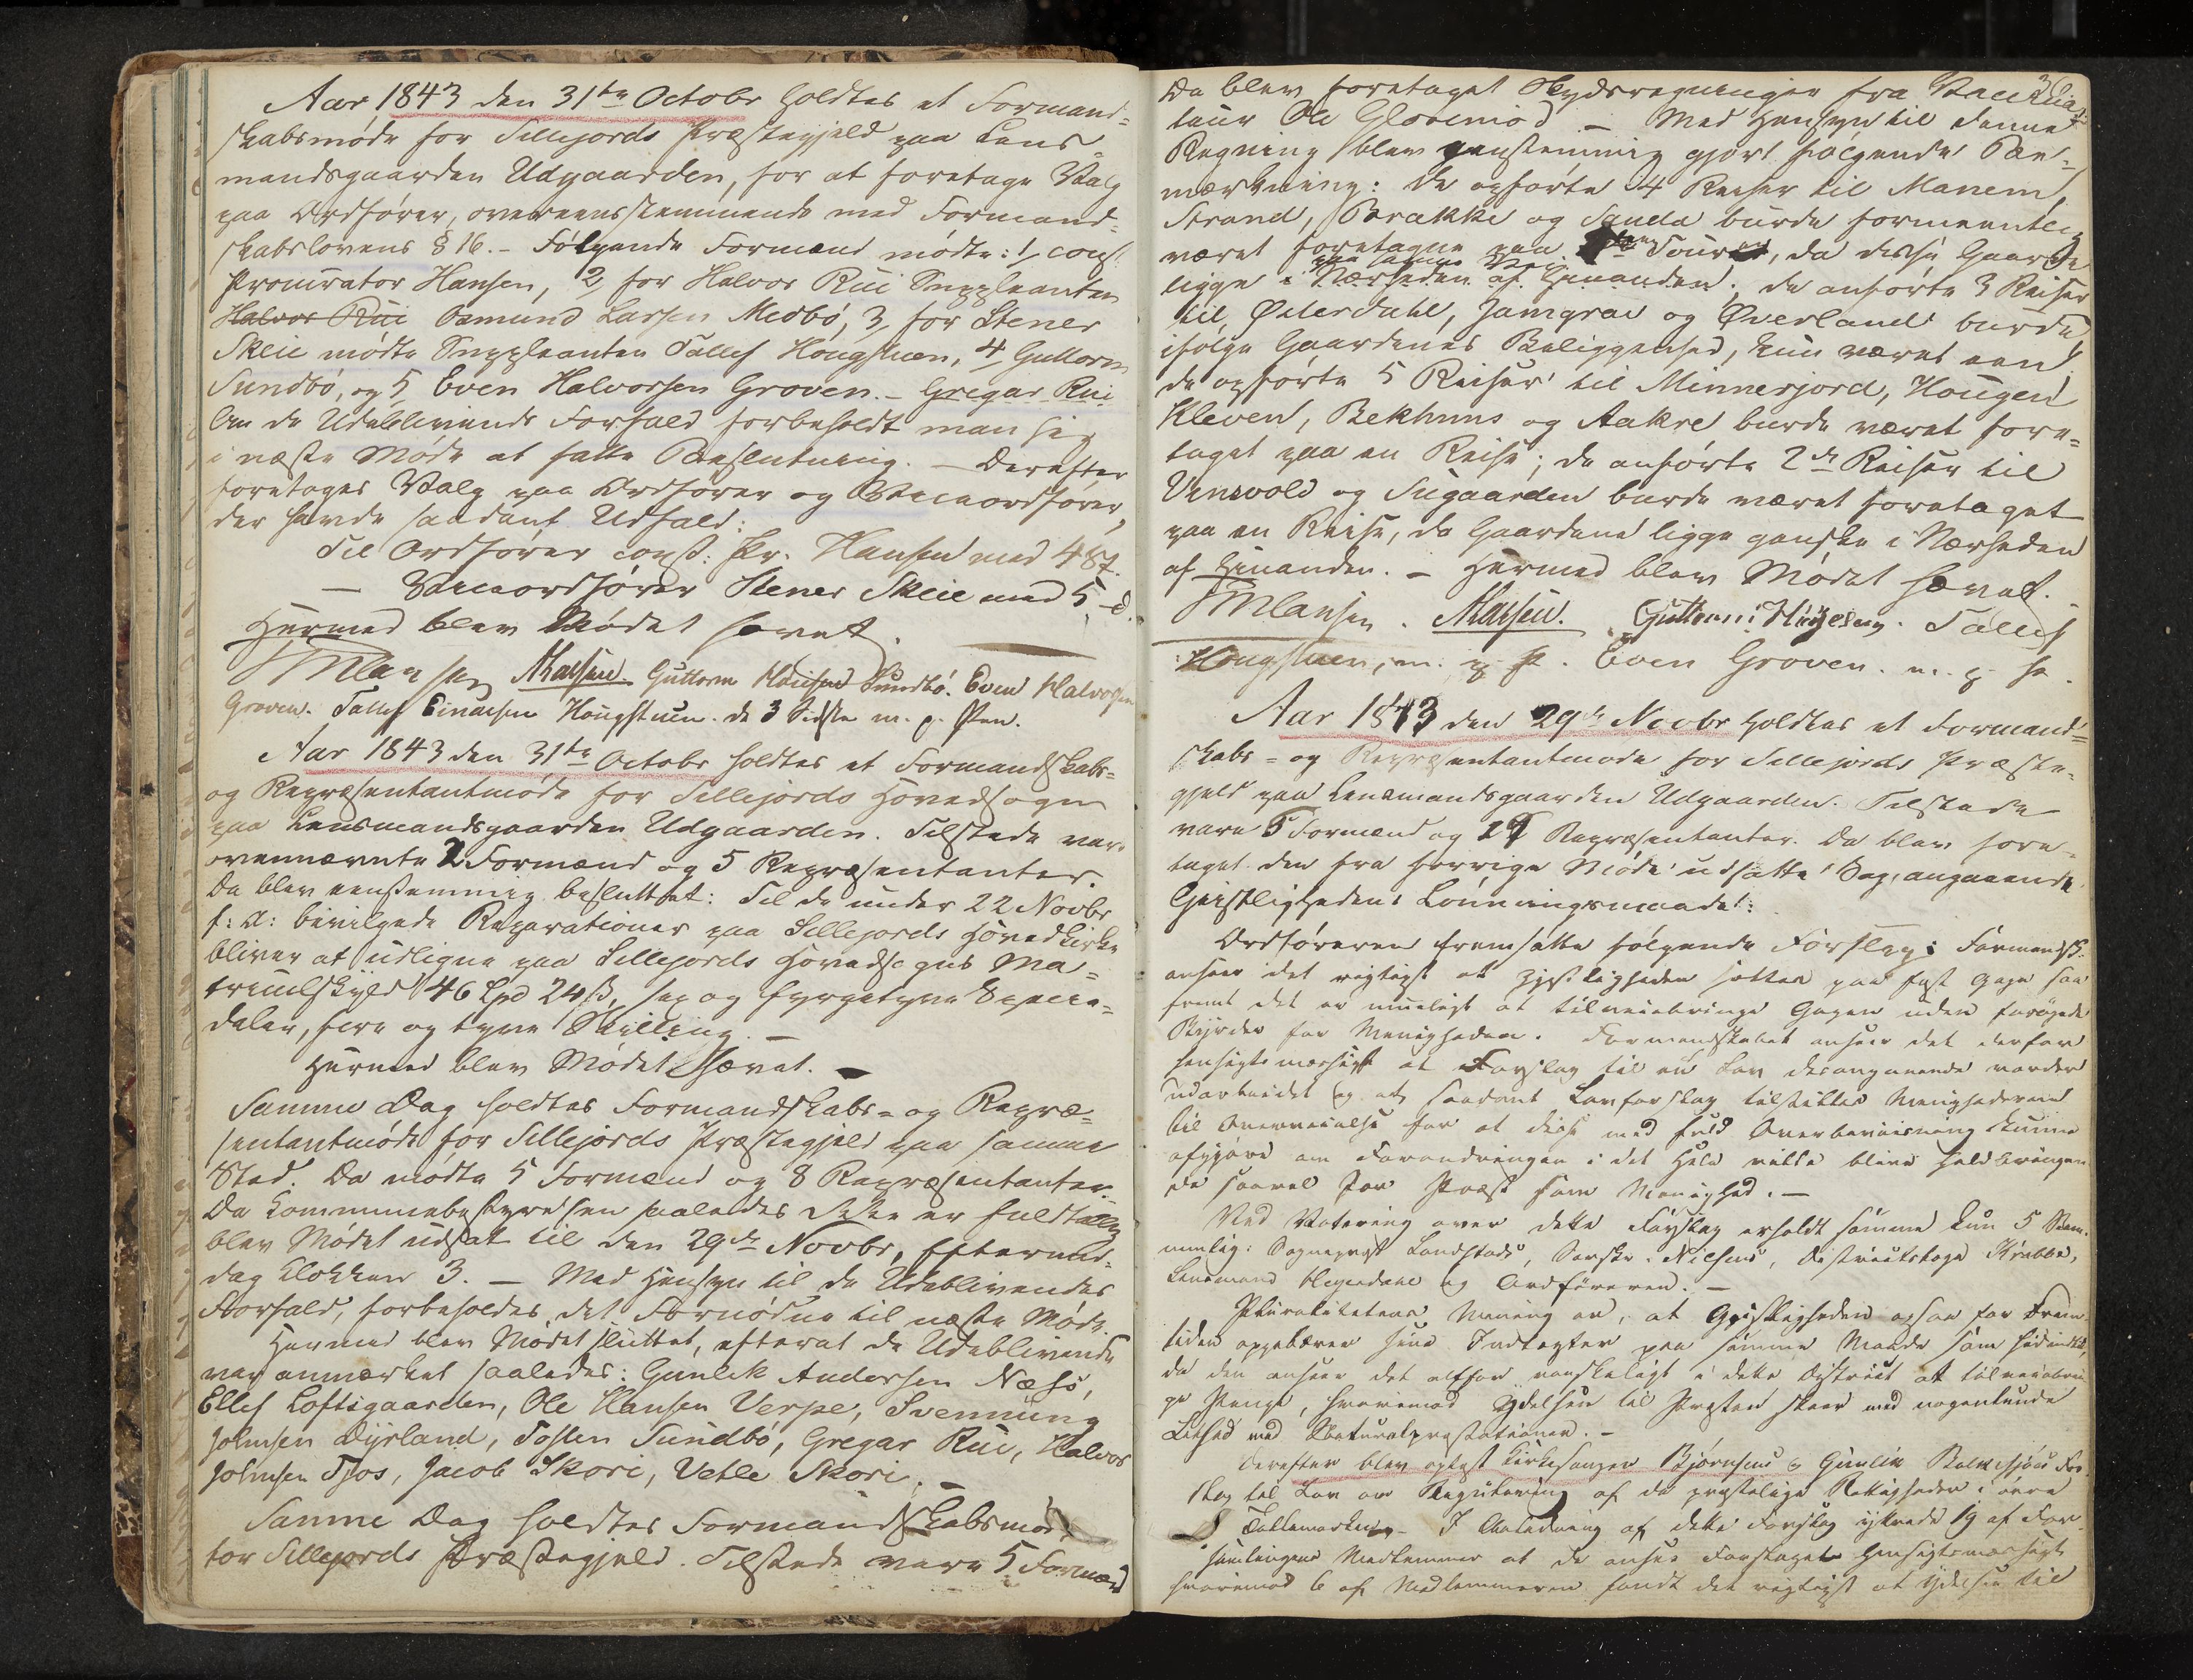 Aar 1843 den 31te Octobr holdtes et Formand=
skabsmøde for Sillejords Præstegjeld paa Lens
mandsgaarden Udgaarden, for at foretage Valg
paa Ordfører, overeensstemmende med Formand=
skabslovens § 16. – Følgende Formænd mødte: 1, const
Procurator Hansen, 2, for Halvor Rui Suppleanten
Halvor Rui Osmund Larsen Medbö, 3, for Stener
Skeie mødte Suppleanten Tallef Hougstuen, 4, Guttorm
Sundbö, og 5, Even Halvorsen Groven. – Gregar Rui
Om de Udeblivende Forfald forbeholdt man sig
i næste Møde at fatte Beslutning. – Derefter
foretoges Valg paa Ordfører og Viceordfører,
der havde saadant Udfald:
Til Ordfører const: Pr. Hansen med 4 St.
– Viceordfører Stener Skeie med 5 – d.
Hermed blev Mødet hævet.
Hansen Guttorm Sundbö. Even Halvorsen
Groven. Tallef Einarsen Hougstuen. de 3 Sidste m. p. Pen.
Aar 1843 den 31te Octobr holdtes et Formandskabs=
og Repræsentantmøde for Sillejords Hovedsogn
paa Lensmandsgaarden Udgaarden. Tilstede vare
ovennævnte 2 Formænd og 5 Repræsentanter.
Da blev eenstemmig besluttet: Til de under 22 Novbr
f: A: bevilgede Reparationer paa Sillejords Hovedkirke
bliver at udligne paa Sillejords Hovedsogns Ma=
trikulskyld 46 Spd 24 ß, sex og fyrgetyve Specie=
daler, fire og tyve Skilling. –
Hermed blev Mødet hævet. –
Samme Dag holdtes Formandskabs= og Repræ=
sentantmøde for Sillejords Præstegjeld paa samme
Sted. Da mødte 5 Formænd og 8 Repræsentanter.
Da Kommunebestyrelsen saaledes ikke er fuldtallig
blev Mødet udsat til den 29de Novbr, Eftermid=
dag Klokken 3. – Med Hensyn til de Udeblivendes
Forfald, forbeholdes det Fornødne til næste Møde.
Hermed blev Mødet sluttet, efterat de Udeblivende
var anmærket saaledes: Gunlek Andersen Næsö,
Ellef Loftsgaarden, Ole Hansen Verpe, Svennung
Johnsen Dyrland, Tosten Sundbö, Gregar Rui, Halvor
Johnsen Tjos, Jacob Skori, Vetle Skori. –
Samme Dag holdtes Formandskabsmöde
for Sillejords Præstegjeld. Tilstede vare 5 Formænd
Da blev foretaget Skydsregninger fra Vaccina=
teur Ole Glosimod – Med Hensyn til denne
Regning blev eenstemmig gjort følgende Be=
mærkning: de opførte 4 Reiser til Manem,
Strand, Brække og Sanda burde formeentlig
været foretagne paa Tour, da disse Gaarde
ligge i Nærheden af Hinanden; de anførte 3 Reiser
til Østerdahl, Jamgrav og Øverland burde
ifølge Gaardenes Beliggenhed, kun været een;
de opførte 5 Reiser til Minnerjord, Hougen
Kleven, Bekhuus og Aakre burde været fore=
taget paa en Reise; de anførte 2de Reiser til
Vinsvold og Sugaarden burde været foretaget
paa en Reise, da Gaardene ligge ganske i Nærheden
af Hinanden. – Hermed blev Mødet hævet.
Hansen. Guttorm. Tallef
Hougstuen, m. p. P. Even Groven. m. p. P.
Aar 1843 den 29de Novbr holdtes et Formand=
skabs= og Repræsentantmøde for Sillejords Præste=
gjeld paa Lensmandsgaarden Udgaarden. Tilstede
vare 5 Formænd og Repræsentanter. Da blev fore=
taget den fra forrige Møde udsatte Sag, angaaende
Geistlighedens Lønningsmaade:
Ordføreren fremsatte følgende Forslag: Formandsk.
anseer det rigtigst at Geistligheden sættes paa fast Gage saa
fremt det er mueligt at tilveiebringe Gagen uden forøgede
Byrder for Menigheden. Formandskabet anseer det derfor
hensigtsmæssigt at Forslag til en Lov desangaaende vorder
udarbeidet og at saadant Lovforslag tilstilles Menighederne
til Overveielse for at disse med fuld Overbeviisning kunne
afgjøre om Forandringen i det Hele vilde blive held bringen
de saavel for Præst som Menighed. –
Ved Votering over dette Forslag erholdt samme kun 5 Stem=
nemlig: Sognepræst Landstads, Nielsens, Districtslæge Krabbe,
Lensmand og Ordføreren. –
Pluralitetens Mening er, at Geistligheden ogsaa for Frem=
tiden oppebærer sine Indtægter paa samme Maade som hidindtil,
da den anseer det altfor vanskeligt i dette District at tilveiebrin
ge Penge, hvorimod Ydelsen til Præsten skeer med nogenlunde
Lethed med Naturalpræstationer. –
Derefter blev oplæst Kirkesanger Björnsens og Gunlik For
slag til Lov om Regulering af de præstelige Rettigheder i øvre
Tellemarken. – I Anledning af dette Forslag yttrede 19 af For=
samlingens Medlemmer at de ansee Forslaget hensigtsmæssigt
hvorimod 6 af Medlemmerne fandt det rigtigst at Ydelsen til